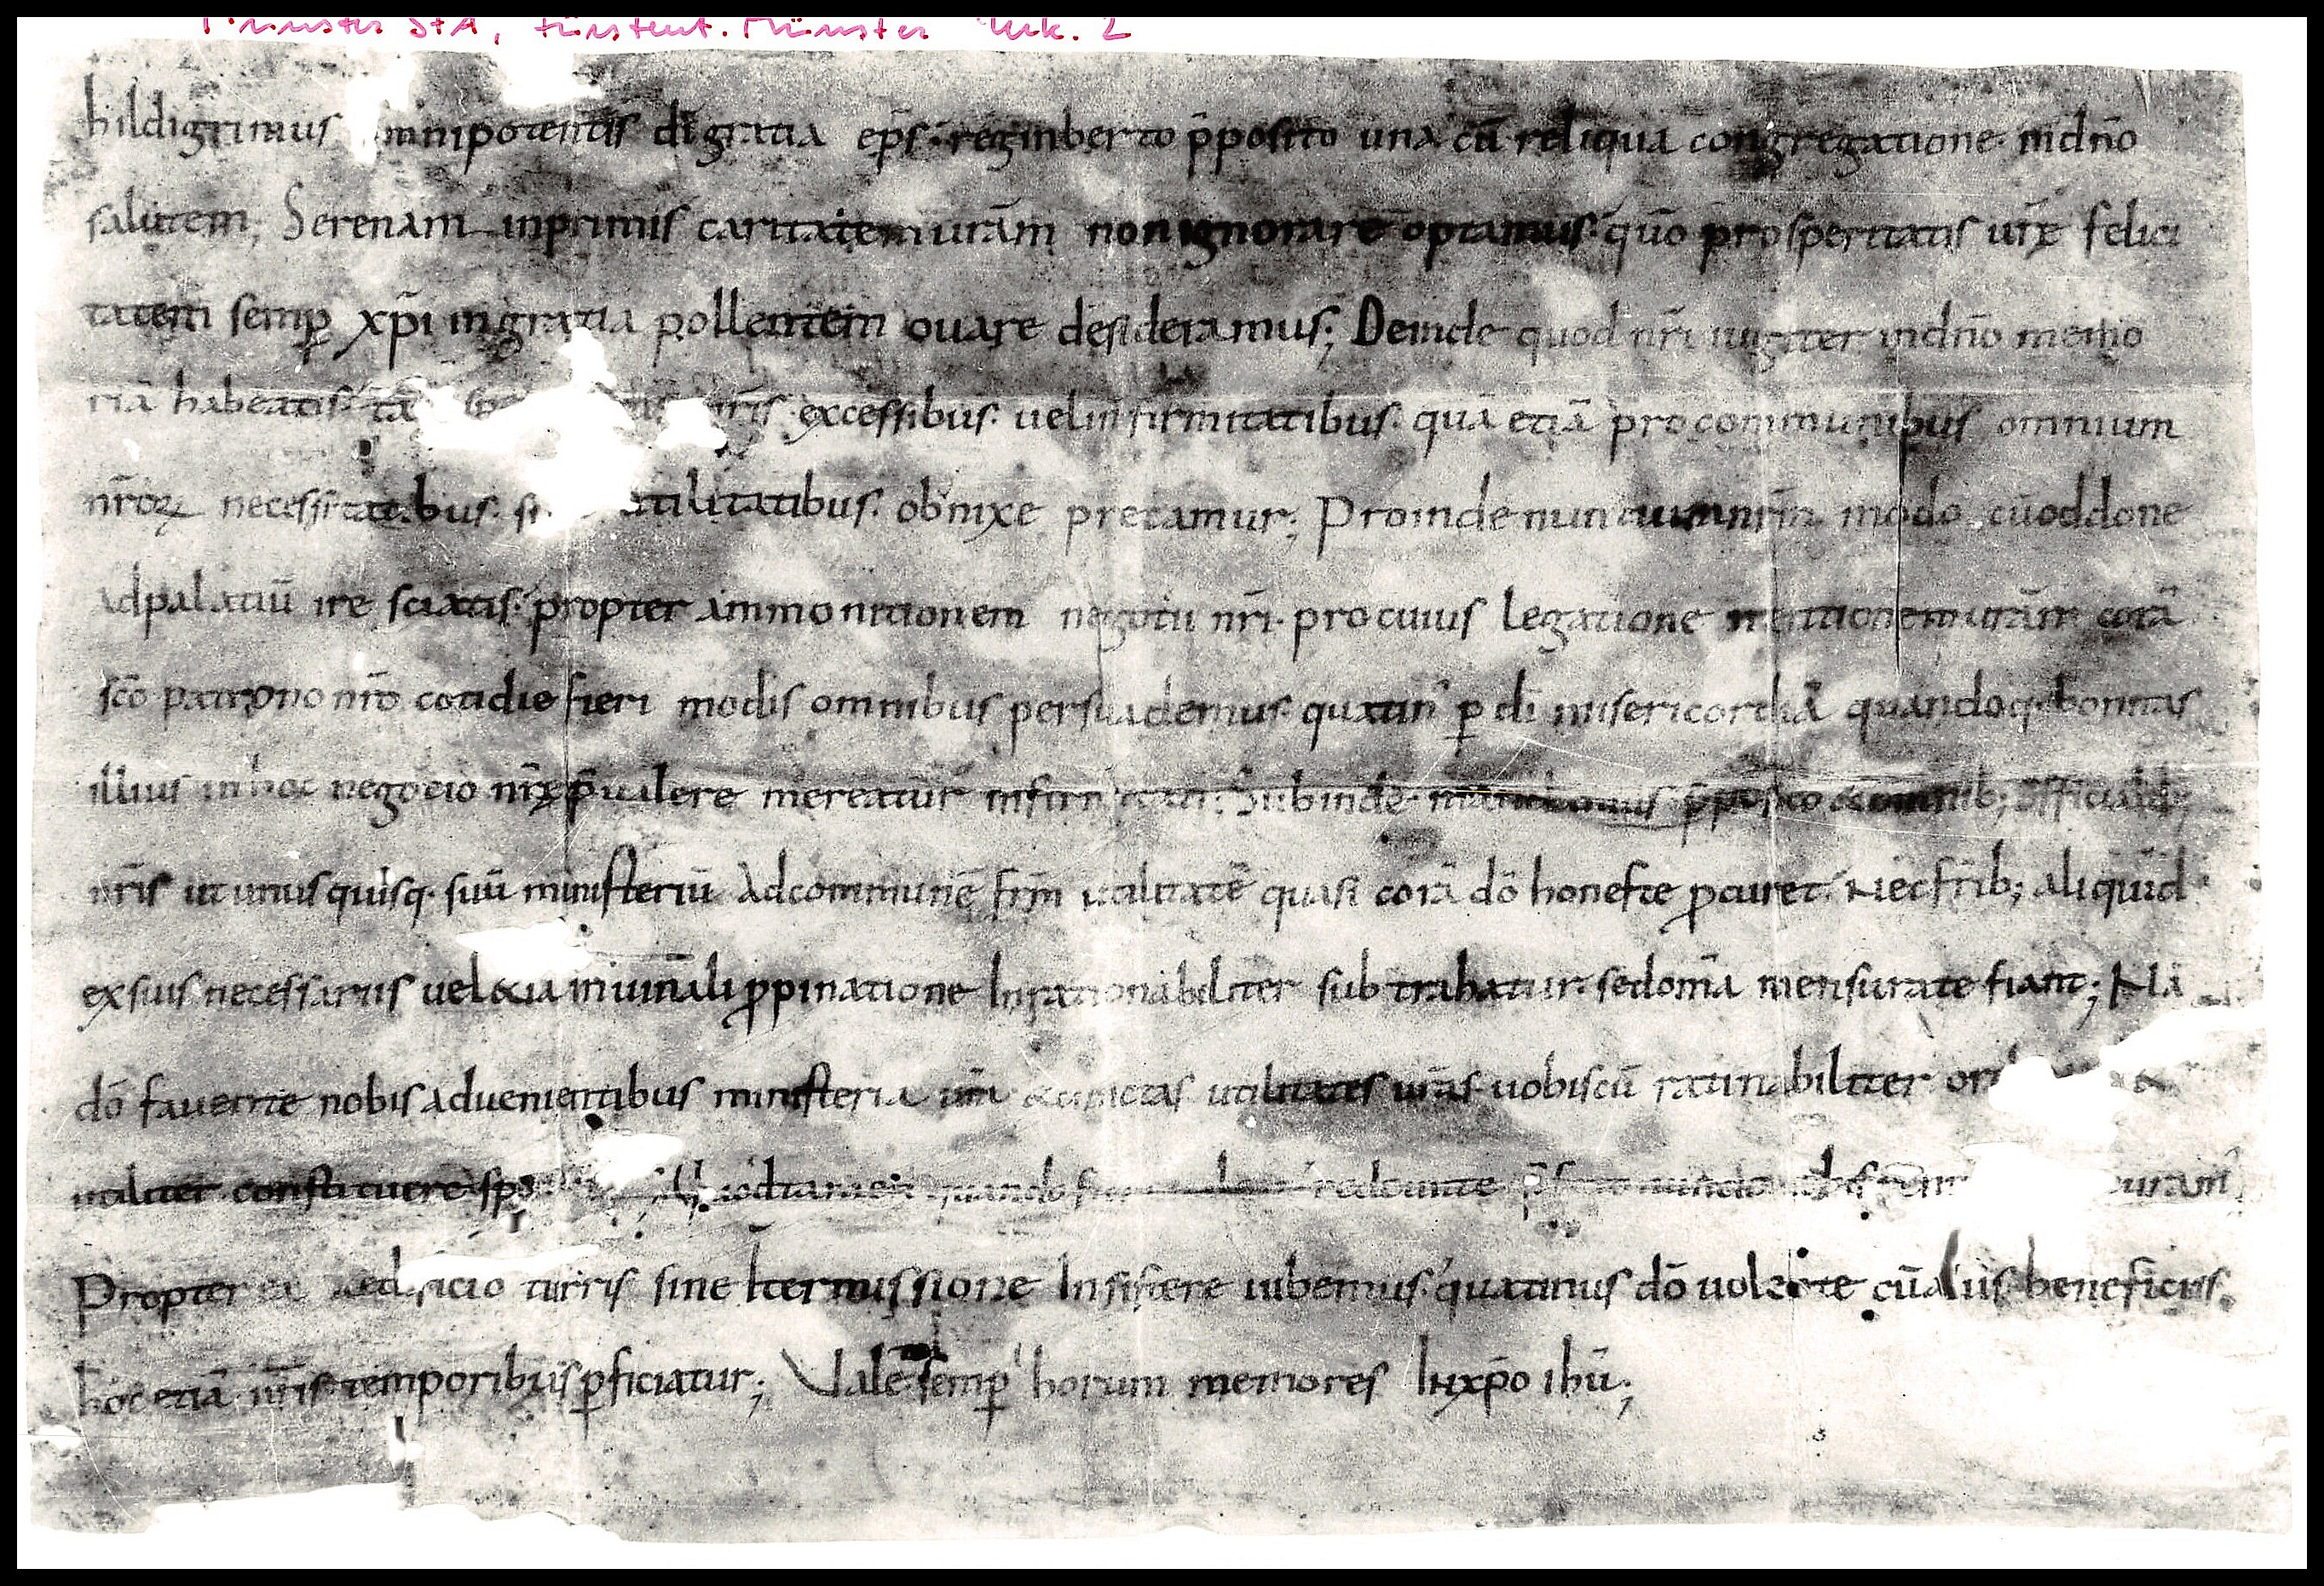 Münster StA, Fürstent. Münster Urk. 2
hildigrimus mnipotentis dī gratia ep̄s · reginberto p̄posito una cū reliqua congregatione · indn̄o
salutem; Serenam inprimis caritatem urām non ignorare optamus · quō prosperitatis ur̄ę felici
tatem semp̱ xp̄i in gratia pollentem ouare desideramus; Deinde quod nr̄i iugiter indn̄o memo
riā habeatis · tā nr̄is · excessibus · uel infirmitatibus · quā etiā pro communibus omnium
nr̄oꝝ necessitatibus · utilitatibus · obnixe precamur; Proinde nuntium nr̄m modo cū oddone
ad palatiū ire sciatis · propter ammonitionem negotii nr̄i · pro cuius legatione mentionem urām corā
sc̄o patrono nr̄o cotidie fieri modis omnibus persuademus · quatin' ꝑ dī misericordiā quandoq· bonitas
illius in hoc negocio nr̄ę p̄ualere mereatur infirmitati · Subinde mandamus p̄posito & omnib; officialib;
nr̄is ut unusquisq· suū ministeriū ad communē fr̄m utilitatē quasi corā dō honeste ꝓcuret · Nec fr̄ib; aliquid
ex suis necessariis uel &iā in uinali ꝓpinatione Inrationabiliter subtrahatur · sed om̄a mensurate fiant; Nā
dō fauente nobis aduenientibus ministeria ur̄a & cunctas utilitates urās uobiscū rationabiliter &
utiliter constituere quando redeunte urām
Propter aedificio turris sine Itermissione Insistere iubemus · quatinus dō uolente cū aliis beneficiis
hoc etiā nr̄is temporibus ꝑficiatur; Vale semp̱ horum memores In xp̄o ihū;